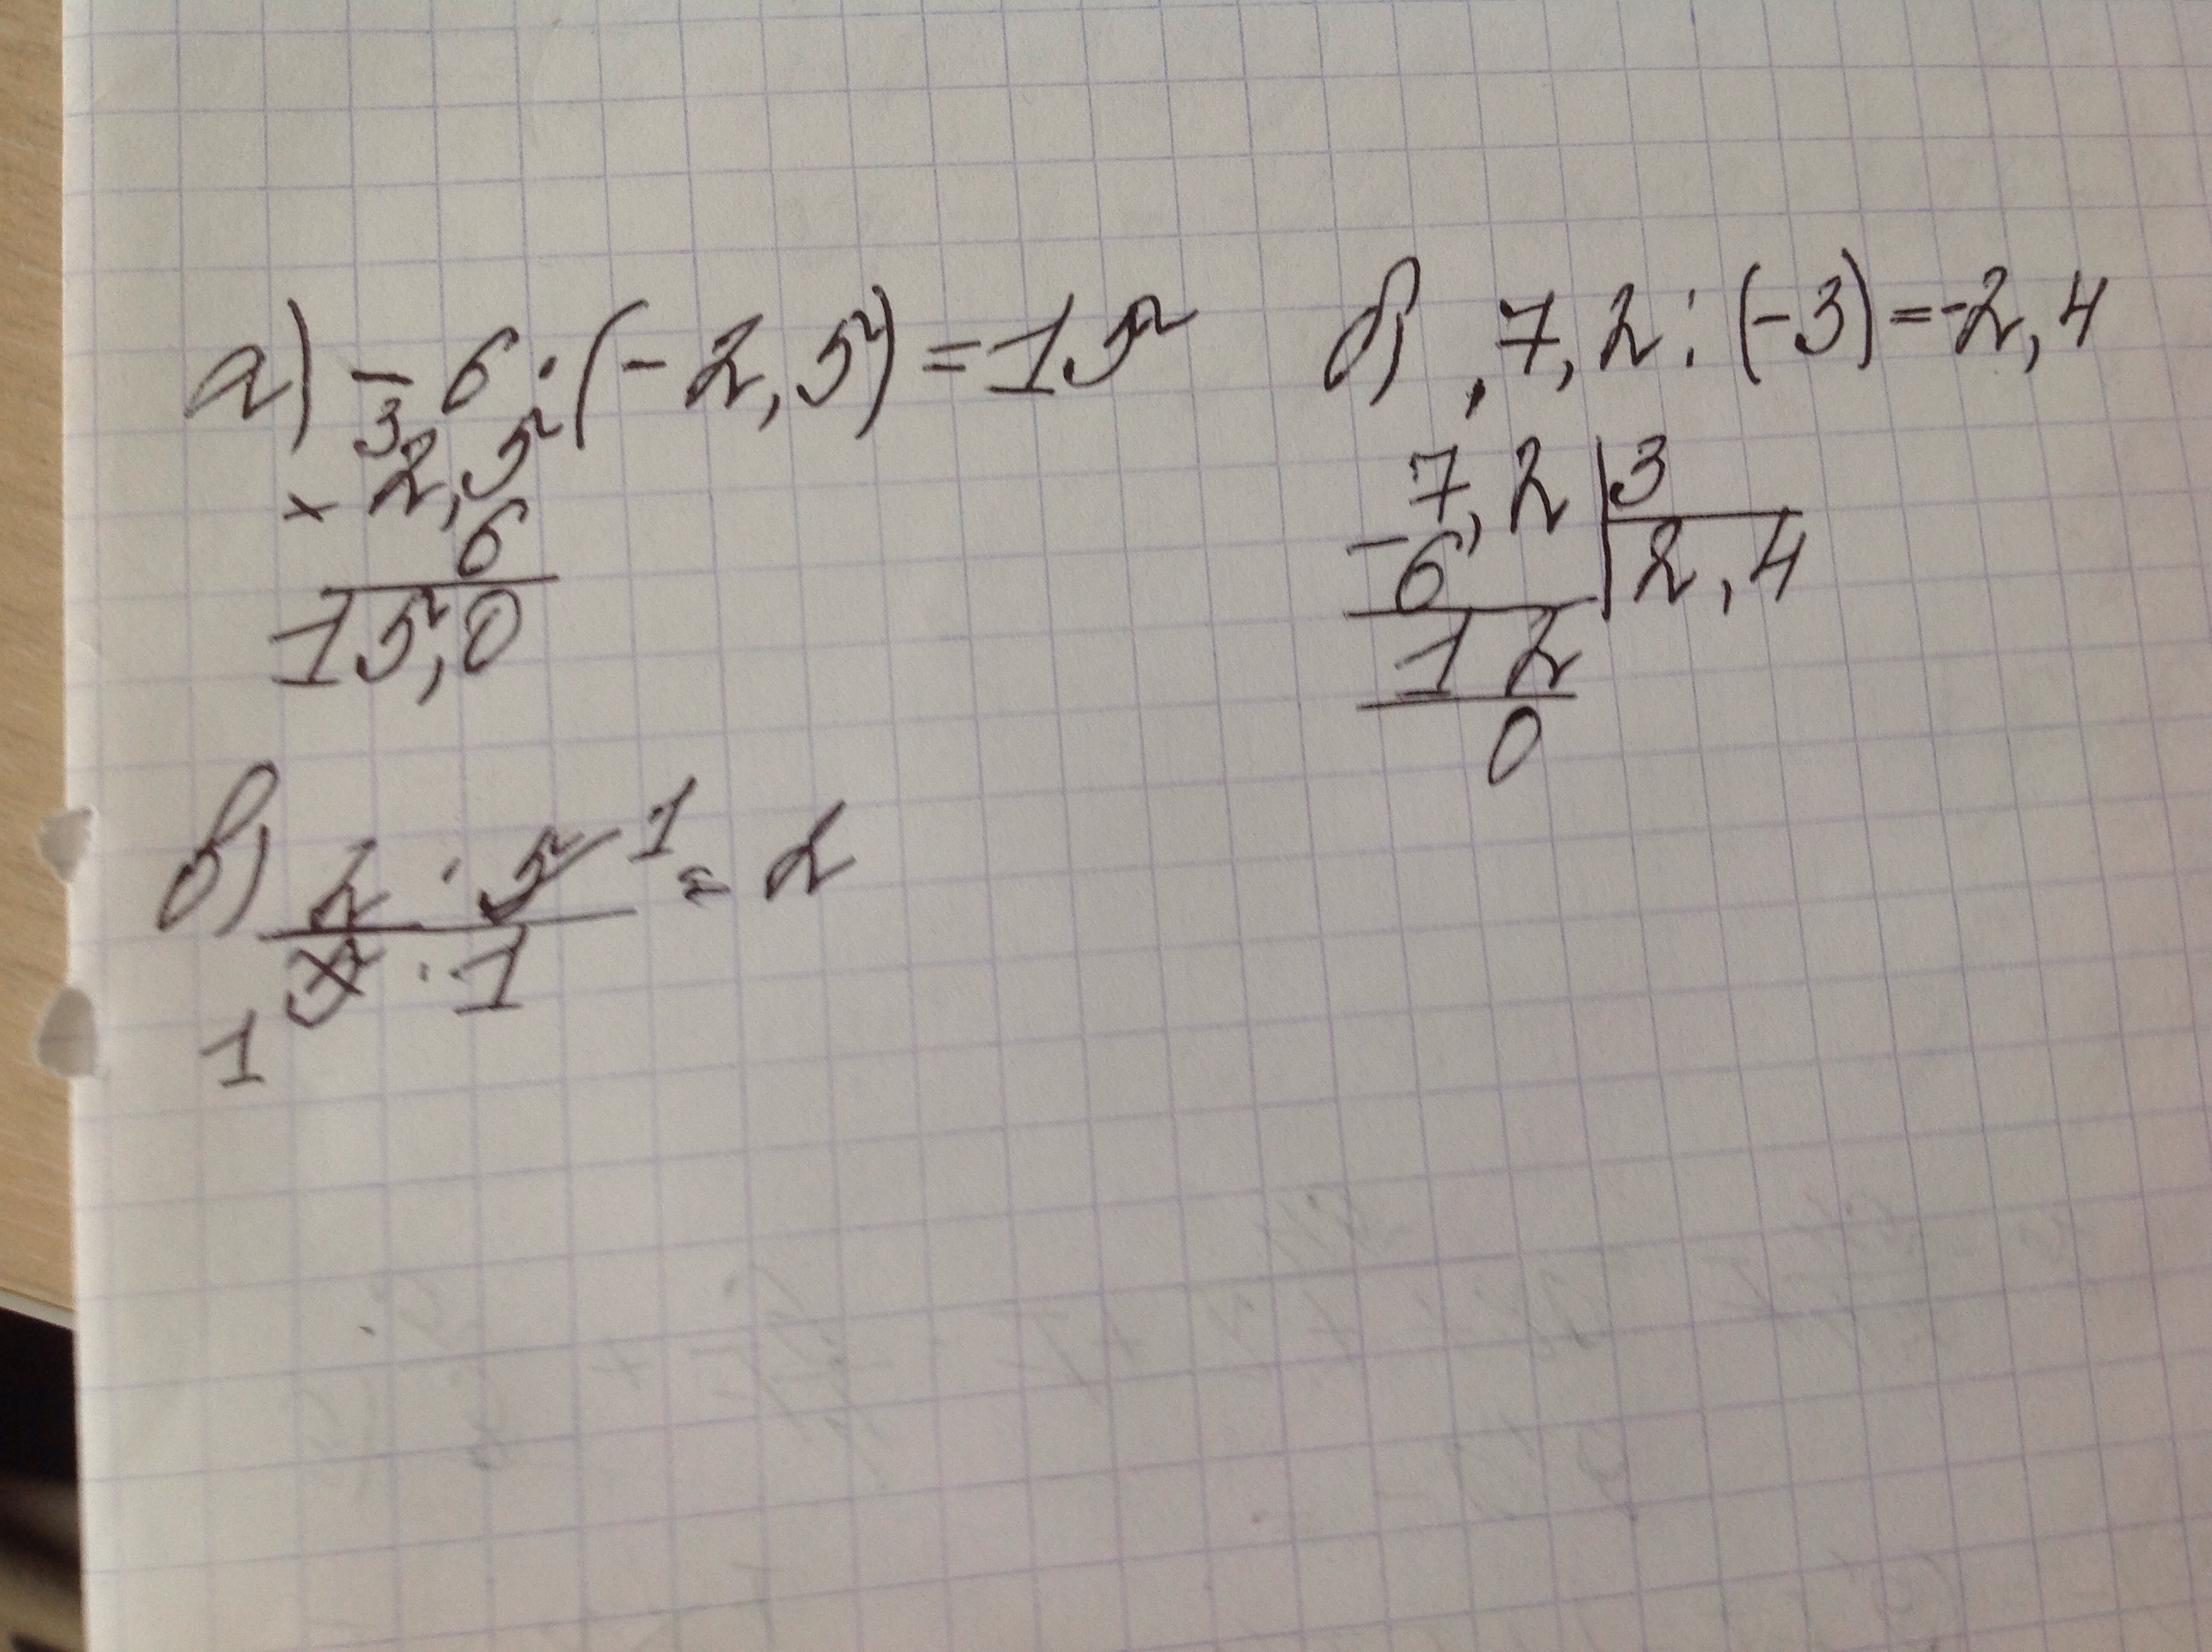 а) - 6 · (- 2,5) = 15
3
× 2,5
6
15,0
б) 7,2 : (-3) = -2,4
7,2 | 3
- 6 | 2,4
12
0
в) 2 · 5 1 = 2
5 · 1
1